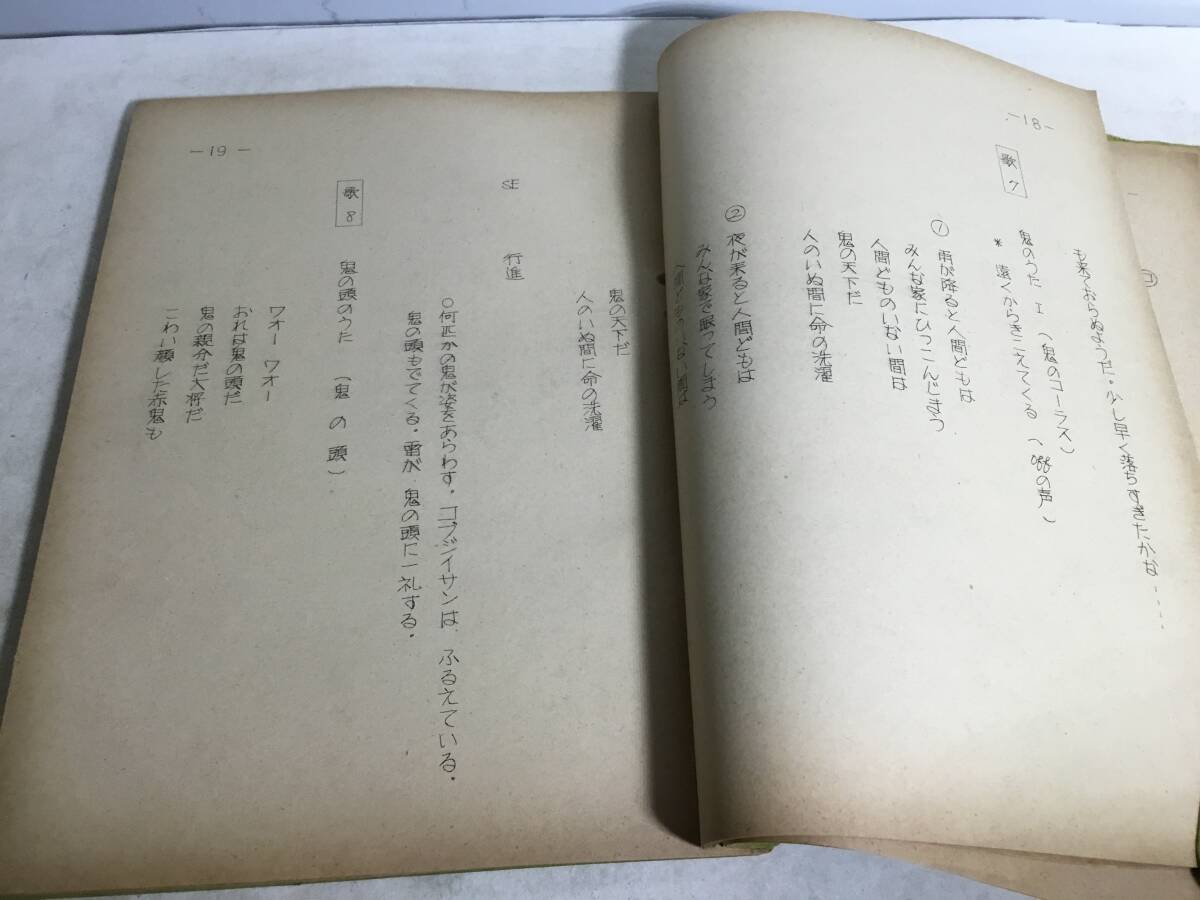 コ
－18－
も来ておらぬようだ。少し早く落ちすぎたかな……
歌 7
鬼のうた I （鬼のコーラス）
* 遠くからきこえてくる （offの声）
① 雨が降ると人間どもは
みんな家にひっこんじまう
人間どものいない間は
鬼の天下だ
人のいぬ間に命の洗濯
② 夜が来ると人間どもは
みんな家で眠ってしまう
人間どものいない間は
－19－
鬼の天下だ
人のいぬ間に命の洗濯
SE 行進
○何匹かの鬼が姿をあらわす。コブジイサンは、ふるえている。
鬼の頭もでてくる。雷が、鬼の頭に一礼する。
歌 8 鬼の頭のうた （鬼の頭）
ワオー ワオー
おれは鬼の頭だ
鬼の親分だ大将だ
こわい顔した赤鬼も